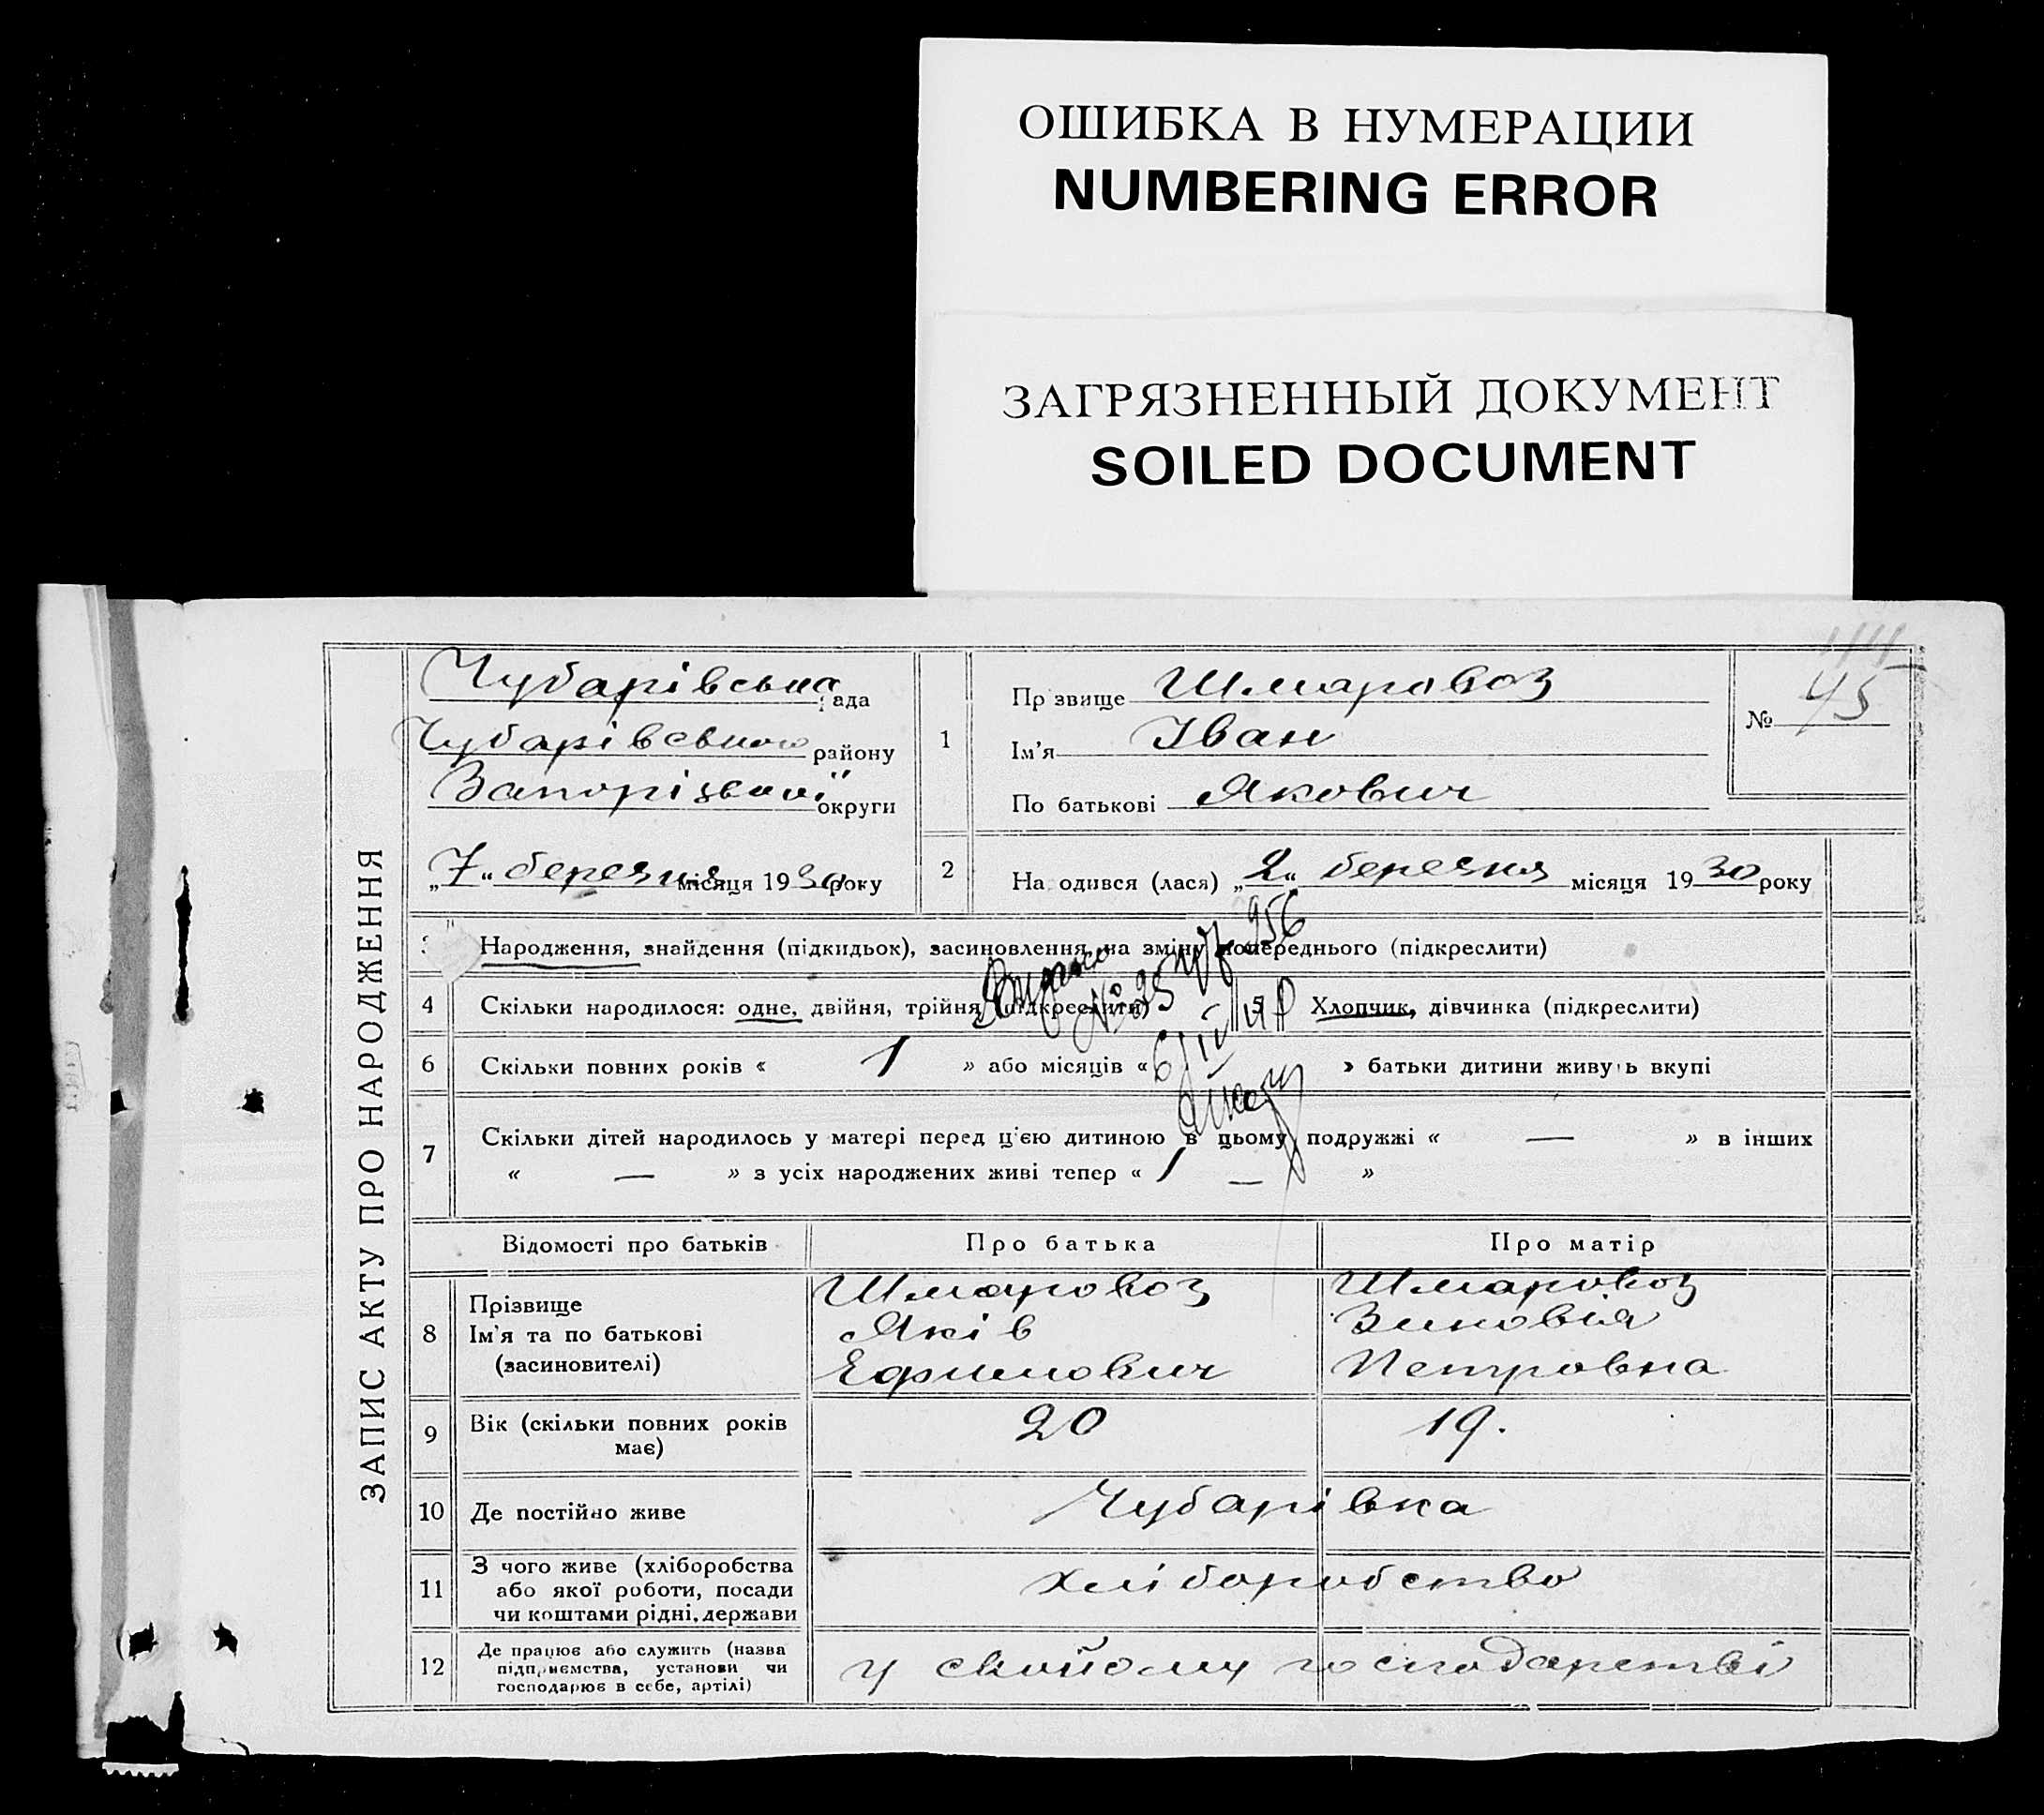 ОШИБКА В НУМЕРАЦИИ
NUMBERING ERROR
ЗАГРЯЗНЕННЫЙ ДОКУМЕНТ
SOILED DOCUMENT
ЗАПИС АКТУ ПРО НАРОДЖЕННЯ
Чубарівська рада
Чубарівського району
Запорізької округи
„7“ березня місяця 1930 року
1
Прізвище Шмаровоз
Ім'я Іван
По батькові Якович
№ 45
2
Народився (лася) „2“ березня місяця 1930 року
3 Народження, знайдення (підкидьок), засиновлення на зміну попереднього (підкреслити)
4 Скільки народилося: одне, двійня, трійня (підкреслити)
5 Хлопчик, дівчинка (підкреслити)
6 Скільки повних років « 1 » або місяців « » батьки дитини живуть вкупі
7 Скільки дітей народилось у матері перед ц'єю дитиною в цьому подружжі « — » в інших
« — » з усіх народжених живі тепер « 1 — »
Відомості про батьків Про батька Про матір
8
Прізвище Шмаровоз Шмаровоз
Ім'я та по батькові Яків Зиновія
(засиновителі) Ефимович Петровна
9 Вік (скільки повних років має) 20 19.
10 Де постійно живе Чубарівка
11 З чого живе (хліборобства
або якої роботи, посади
чи коштами рідні, держави хліборобство
12 Де працює або служить (назва
підприємства, установи чи
господарює в себе, артілі) у свойому господарстві